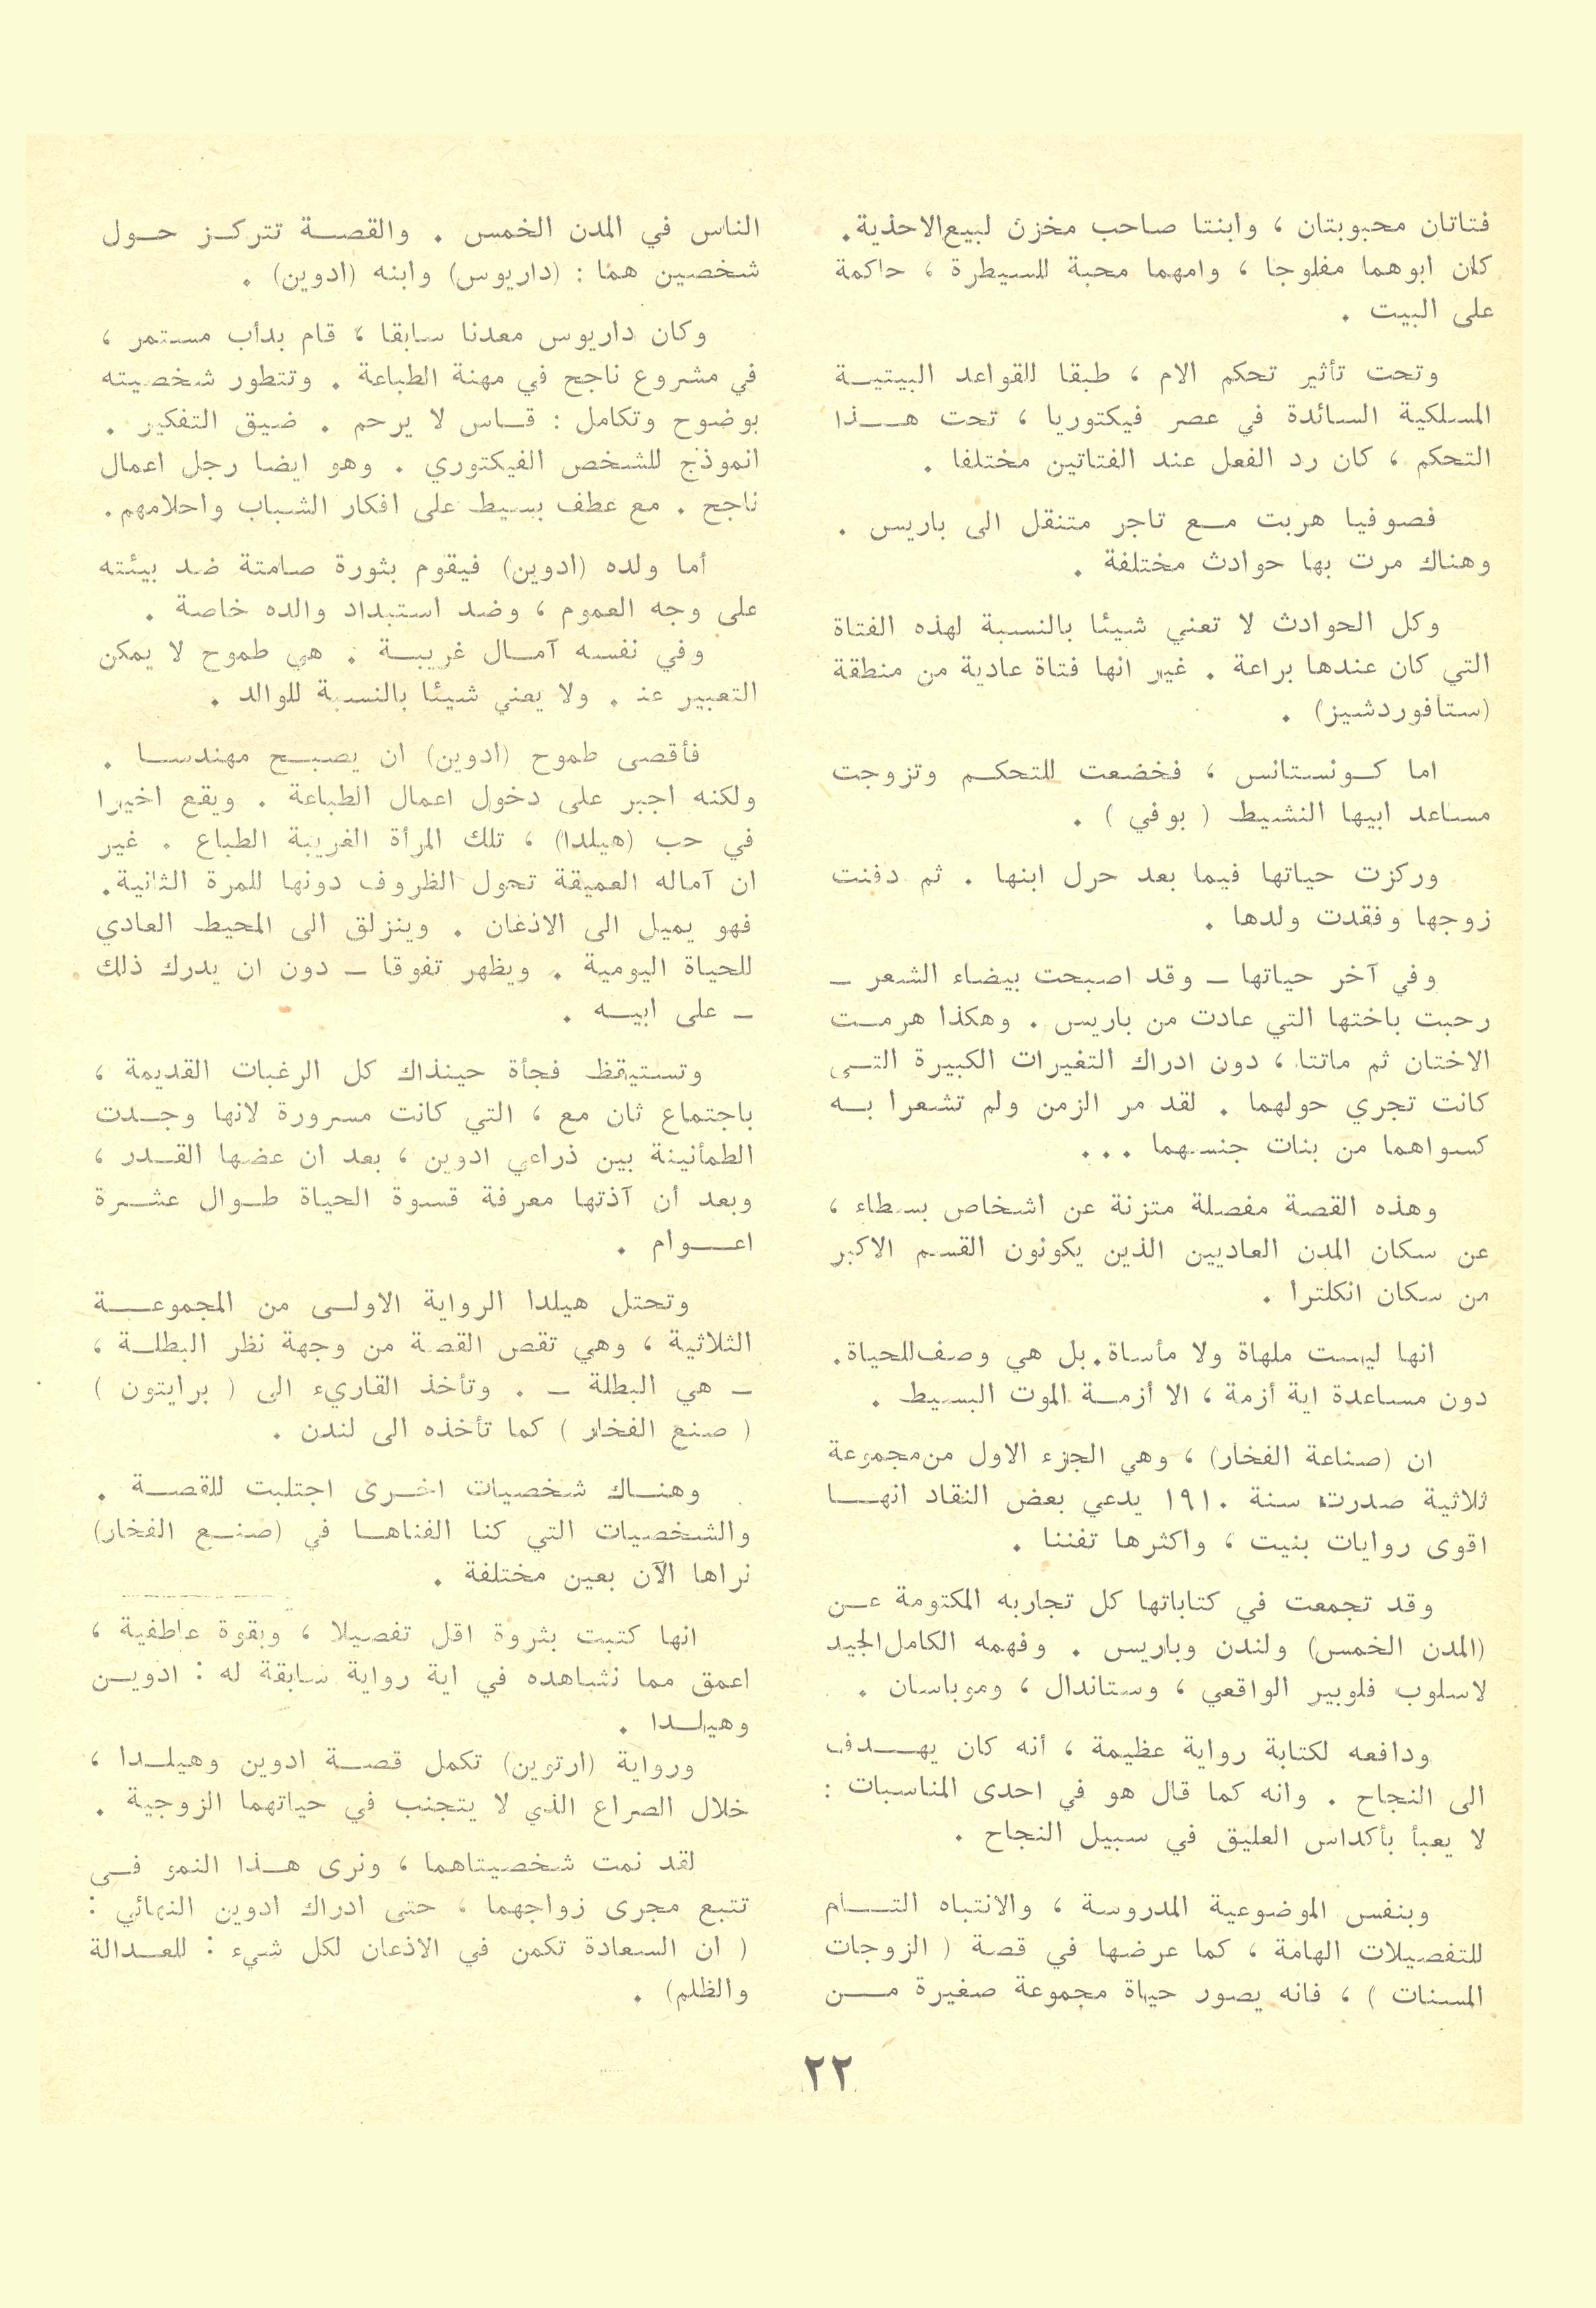 فتاتان محبوبتان ، وابنتا صاحب مخزن لبيع الاحذية .
كان ابوهما مفلوجا ، وامهما محبة للسيطرة ، حاكمة
على البيت .
وتحت تأثير تحكم الام ، طبقا للقواعد البيتيــة
المسلكية السائدة في عصر فيكتوريا ، تحت هـــذا
التحكم ، كان رد الفعل عند الفتاتين مختلفا .
فصوفيا هربت مـع تاجر متنقل الى باريس .
وهناك مرت بها حوادث مختلفة .
وكل الحوادث لا تعني شيئا بالنسبة لهذه الفتاة
التي كان عندها براعة . غير انها فتاة عادية من منطقة
(ستافوردشيز) .
اما كـونستانس ، فخضعت للتحكـم وتزوجت
مساعد ابيها النشيط ( بوفي ) .
وركزت حياتها فيما بعد حرل ابنها . ثم دفنت
زوجها وفقدت ولدها .
وفي آخر حياتها ــ وقد اصبحت بيضاء الشعر ــ
رحبت باختها التي عادت من باريس . وهكذا هرمـت
الاختان ثم ماتتا ، دون ادراك التغيرات الكبيرة التــي
كانت تجري حولهما . لقد مر الزمن ولم تشعرا بــه
كسواهما من بنات جنسهما ...
وهذه القصة مفصلة متزنة عن اشخاص بسطاء ،
عن سكان المدن العاديين الذين يكونون القسم الاكبر
من سكان انكلترا .
انها ليست ملهاة ولا مأساة . بل هي وصف للحياة .
دون مساعدة اية أزمة ، الا أزمــة الموت البسيط .
ان (صناعة الفخار) ، وهي الجزء الاول من مجموعة
ثلاثية صدرت سنة ١٩١٠ يدعي بعض النقاد انهــا
اقوى روايات بنيت ، واكثرها تفننا .
وقد تجمعت في كتاباتها كل تجاربه المكتومة عـن
(المدن الخمس) ولندن وباريس . وفهمه الكامل الجيد
لاسلوب فلوبير الواقعي ، وستاندال ، وموباسان .
ودافعه لكتابة رواية عظيمة ، أنه كان يهــدف
الى النجاح . وانه كما قال هو في احدى المناسبات :
لا يعبأ بأكداس العليق في سبيل النجاح .
وبنفس الموضوعية المدروسة ، والانتباه التــام
للتفصيلات الهامة ، كما عرضها في قصة ( الزوجات
المسنات ) ، فانه يصور حياة مجموعة صغيرة مــن
الناس في المدن الخمس . والقصــة تتركـز حـول
شخصين هما : (داريوس) وابنه (ادوين) .
وكان داريوس معدنا سابقا ، قام بدأب مستمر ،
في مشروع ناجح في مهنة الطباعة . وتتطور شخصيته
بوضوح وتكامل : قـاس لا يرحم . ضيق التفكير .
انموذج للشخص الفيكتوري . وهو ايضا رجل اعمال
ناجح . مع عطف بسيط على افكار الشباب واحلامهم .
أما ولده (ادوين) فيقوم بثورة صامتة ضد بيئته
على وجه العموم ، وضد استبداد والده خاصة .
وفي نفسه آمـال غريبـة . هي طموح لا يمكن
التعبير عنـ . ولا يعني شيئا بالنسبة للوالد .
فأقصى طموح (ادوين) ان يصبـح مهندسـا .
ولكنه اجبر على دخول اعمال الطباعة . ويقع اخيرا
في حب (هيلدا) ، تلك المرأة الغريبة الطباع . غير
ان آماله العميقة تحول الظروف دونها للمرة الثانية .
فهو يميل الى الاذعان . وينزلق الى المحيط العادي
للحياة اليومية . ويظهر تفوقا ــ دون ان يدرك ذلك
ــ على ابيـه .
وتستيقظ فجأة حينذاك كل الرغبات القديمة ،
باجتماع ثان مع ، التي كانت مسرورة لانها وجـدت
الطمأنينة بين ذراعي ادوين ، بعد ان عضها القـدر ،
وبعد أن آذتها معرفة قسوة الحياة طـوال عشـرة
اعـــوام .
وتحتل هيلدا الرواية الاولــى من المجموعــة
الثلاثية ، وهي تقص القصة من وجهة نظر البطلـة ،
ــ هي البطلة ــ . وتأخذ القاريء الى ( برايتون )
( صنع الفخار ) كما تأخذه الى لندن .
وهنـاك شخصيات اخـرى اجتلبت للقصـة .
والشخصيات التي كنا الفناهـا في (صنـع الفخار)
نراها الآن بعين مختلفة .
انها كتبت بثروة اقل تفصيلا ، وبقوة عاطفية ،
اعمق مما نشاهده في اية رواية سابقة له : ادويـن
وهيلـدا .
ورواية (ارتوين) تكمل قصـة ادوين وهيلـدا ،
خلال الصراع الذي لا يتجنب في حياتهما الزوجية .
لقد نمت شخصيتاهما ، ونرى هـذا النمو فـي
تتبع مجرى زواجهما ، حتى ادراك ادوين النهائي :
( ان السعادة تكمن في الاذعان لكل شيء : للعـدالة
والظلم) .
٢٢